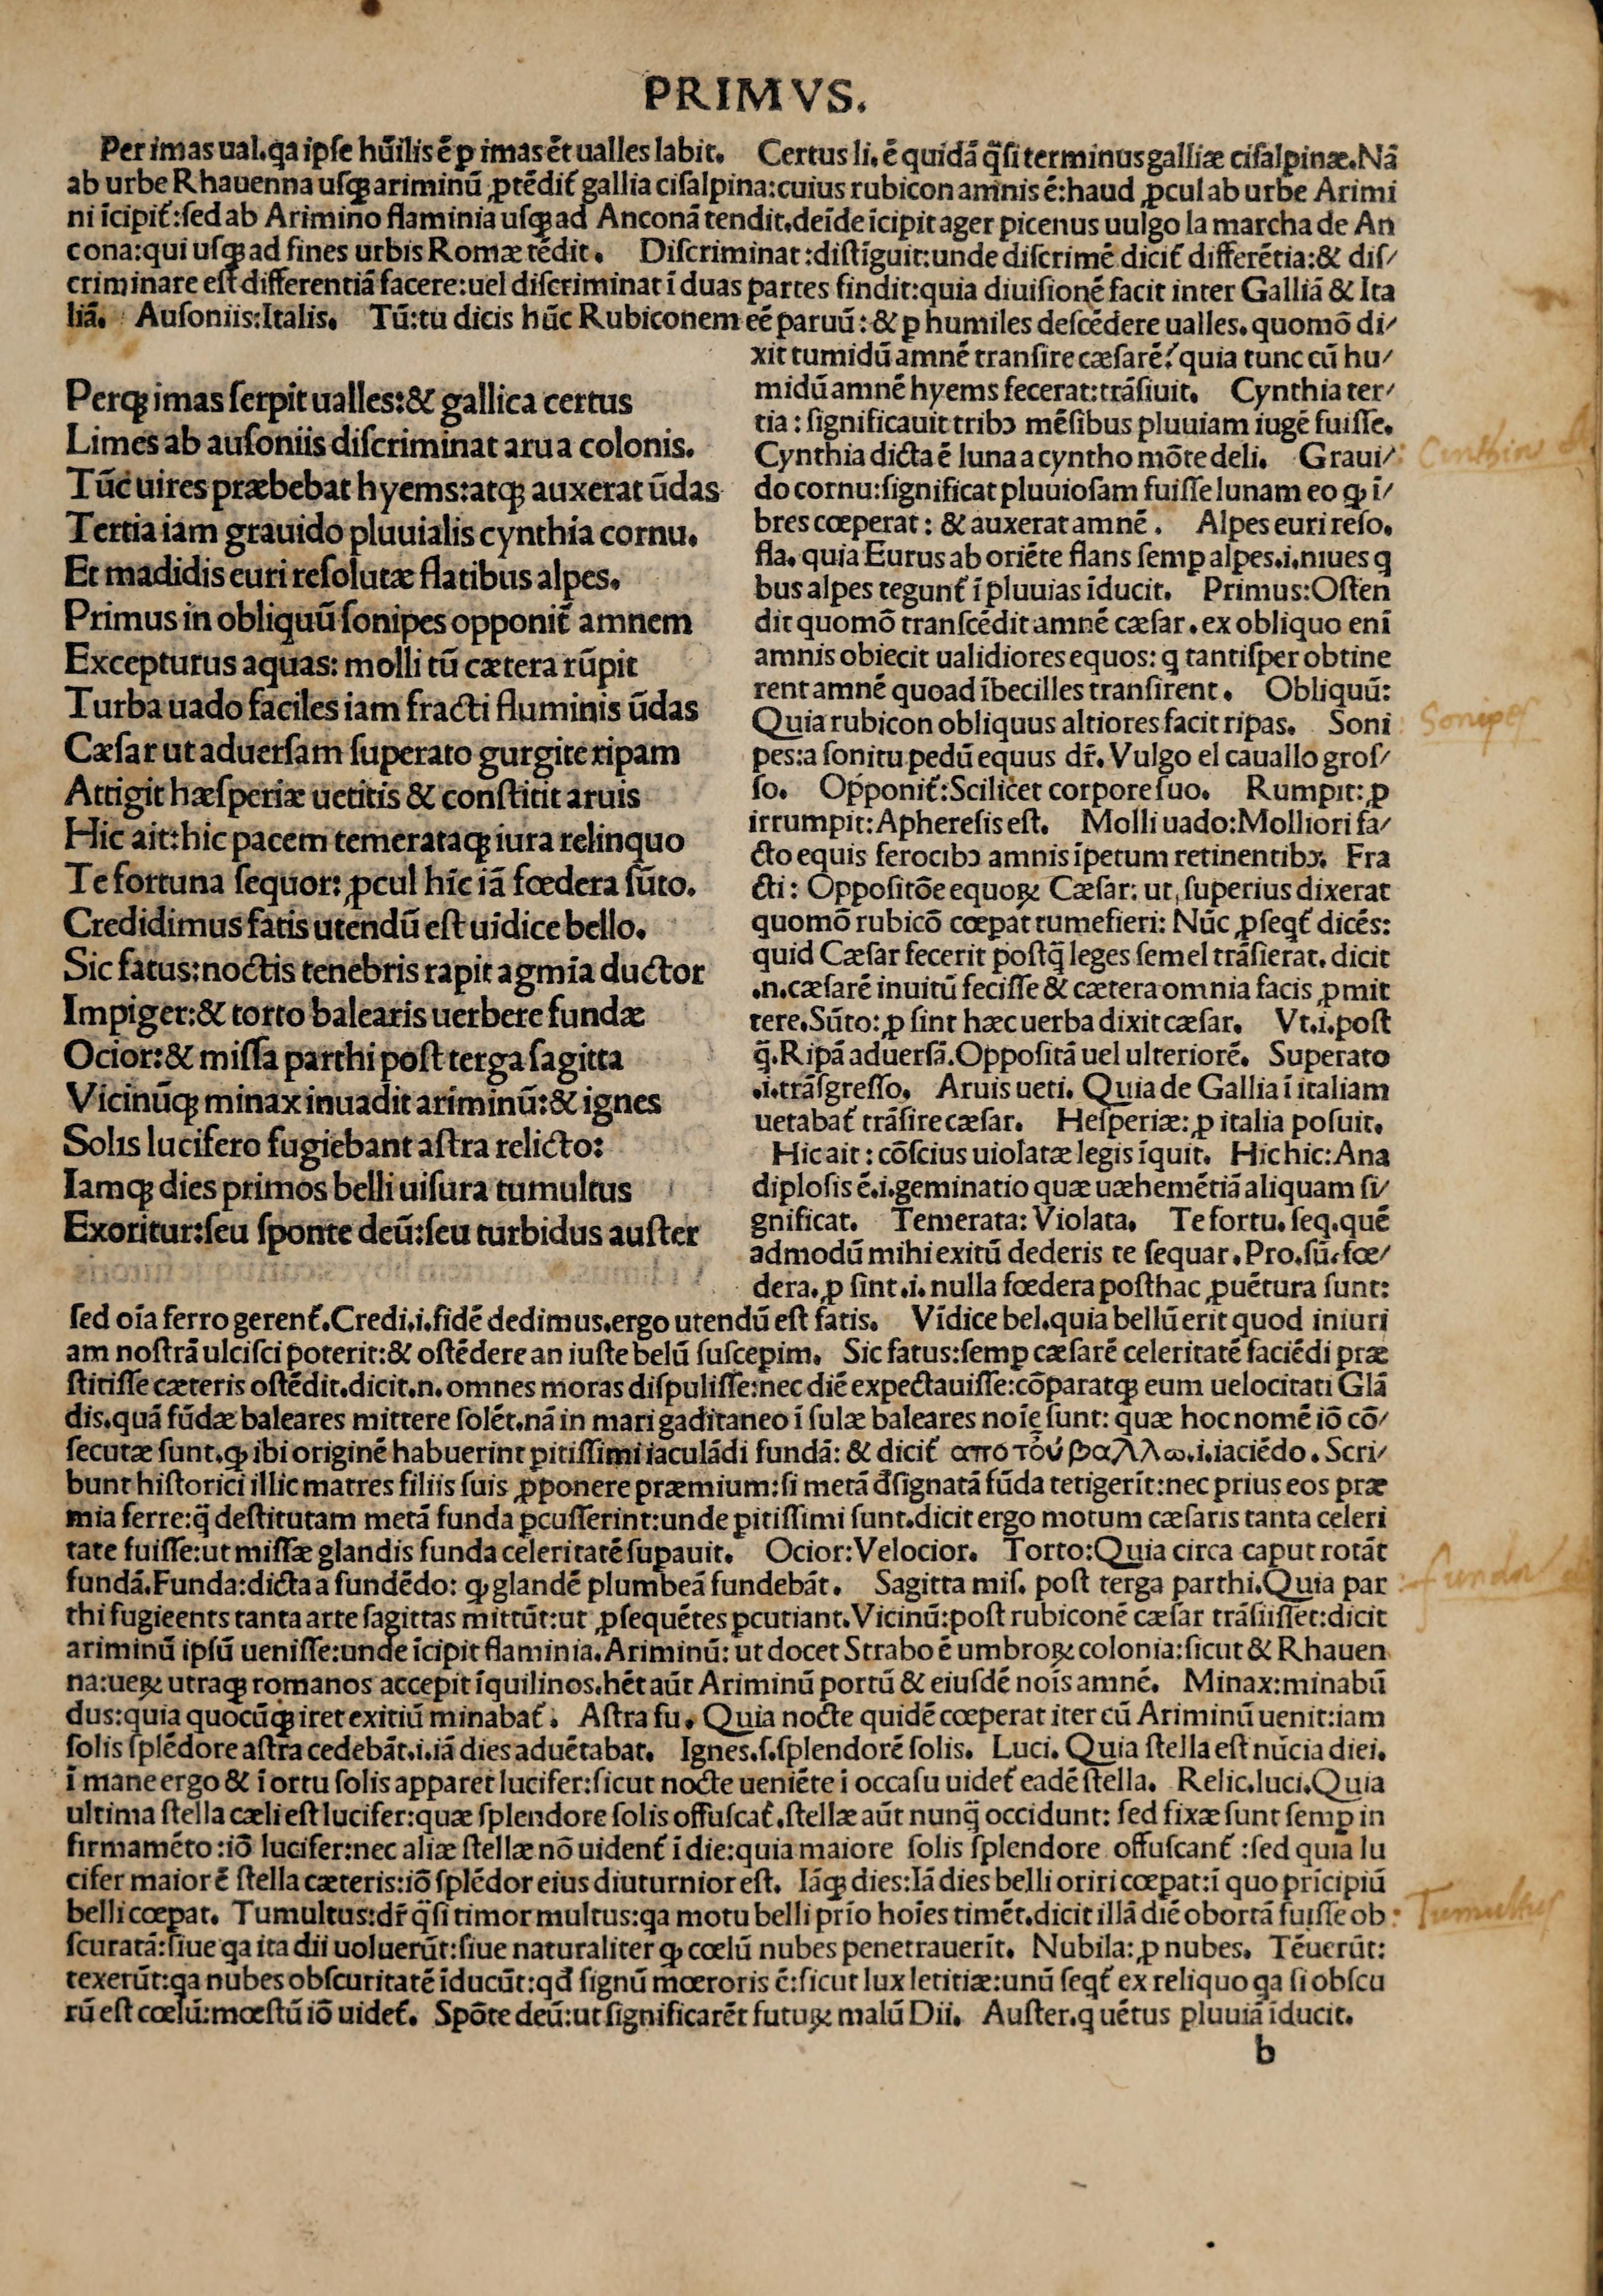 PRIMVS.
Per imas ual.qa ipſe hũilis ẽ ꝑ imas ẽt ualles labit. Certus li. ẽ quidã q̃ſi terminus galliæ ciſalpinæ.Nã
ab urbe Rhauenna uſqꝫ ariminũ ꝓtẽdit᷑ gallia ciſalpina:cuius rubicon amnis ẽ:haud ꝓcul ab urbe Arimi
ni ĩcipit᷑:ſed ab Arimino flaminia uſqꝫ ad Anconã tendit.deĩde ĩcipit ager picenus uulgo la marcha de An
cona:qui uſqꝫ ad fines urbis Romæ tẽdit. Diſcriminat:diſtĩguit:unde diſcrimẽ dicit᷑ differẽtia:& diſ/
criminare eſt differentiã facere:uel diſcriminat ĩ duas partes findit:quia diuiſionẽ facit inter Galliã & Ita
liã. Auſoniis:Italis. Tũ:tu dicis hũc Rubiconem eẽ paruũ:& ꝑ humiles deſcẽdere ualles.quomõ di/
xit tumidũ amnẽ tranſire cæſarẽ? quia tunc cũ hu/
midũ amnẽ hyems fecerat:trãſiuit. Cynthia ter/
tia: ſignificauit tribꝰ mẽſibus pluuiam iugẽ fuiſſe.
Cynthia dicta ẽ luna a cyntho mõte deli. Graui/
do cornu:ſignificat pluuioſam fuiſſe lunam eo ꝙ ĩ/
bres cœperat: & auxerat amnẽ. Alpes euri reſo.
fla. quia Eurus ab oriẽte flans ſemꝑ alpes.i.niues q
bus alpes tegunt᷑ ĩ pluuias ĩducit. Primus:Oſten
dit quomõ tranſcẽdit amnẽ cæſar. ex obliquo enĩ
amnis obiecit ualidiores equos: q tantiſper obtine
rent amnẽ quoad ĩbecilles tranſirent. Obliquũ:
Quia rubicon obliquus altiores facit ripas. Soni
pes:a ſonitu pedũ equus dr̃. Vulgo el cauallo groſ/
ſo. Opponit᷑:Scilicet corpore ſuo. Rumpit:ꝓ
irrumpit:Aphereſis eſt. Molli uado:Molliori fa/
cto equis ferocibꝰ amnis ĩpetum retinentibꝰ. Fra
cti: Oppoſitõe equoꝝ Cæſar: ut ſuperius dixerat
quomõ rubicõ cœpat tumefieri: Nũc ꝓſeqt᷑ dicẽs:
quid Cæſar fecerit poſtq̃ leges ſemel trãſierat. dicit
.n.cæſarẽ inuitũ feciſſe & cætera omnia facis ꝓmit
tere.Sũto:ꝓ ſint hæc uerba dixit cæſar. Vt.i.poſt
q̃.Ripã aduerſã.Oppoſitã uel ulteriorẽ. Superato
.i.trãſgreſſo. Aruis ueti. Quia de Gallia ĩ italiam
uetabat᷑ trãſire cæſar. Heſperiæ:ꝓ italia poſuit.
Hic ait: cõſcius uiolatæ legis ĩquit. Hic hic:Ana
diploſis ẽ.i.geminatio quæ uæhemẽtiã aliquam ſi/
gnificat. Temerata: Violata. Te fortu. ſeq.quẽ
admodũ mihi exitũ dederis te ſequar.Pro.ſũ.fœ/
dera.ꝓ ſint.i. nulla fœdera poſthac ꝓuẽtura ſunt:
Perqꝫ imas ſerpit ualles:& gallica certus
Limes ab auſoniis diſcriminat arua colonis.
Tũc uires præbebat hyems:atqꝫ auxerat ũdas
Tertia iam grauido pluuialis cynthia cornu.
Et madidis euri reſolutæ flatibus alpes.
Primus in obliquũ ſonipes opponit᷑ amnem
Excepturus aquas: molli tũ cætera rũpit
Turba uado faciles iam fracti fluminis ũdas
Cæſar ut aduerſam ſuperato gurgite ripam
Attigit hæſperiæ uetitis & conſtitit aruis
Hic ait:hic pacem temerataqꝫ iura relinquo
Te fortuna ſequor:ꝓcul hĩc iã fœdera ſũto.
Credidimus fatis utendũ eſt uĩdice bello.
Sic fatus:noctis tenebris rapit agmĩa ductor
Impiger:& torto balearis uerbere fundæ
Ocior:& miſſa parthi poſt terga ſagitta
Vicinũqꝫ minax inuadit ariminũ:& ignes
Solis lucifero fugiebant aſtra relicto:
Iamqꝫ dies primos belli uiſura tumultus
Exoritur:ſeu ſponte deũ:ſeu turbidus auſter
ſed oĩa ferro gerent᷑.Credi.i.fidẽ dedimus.ergo utendũ eſt fatis. Vĩdice bel.quia bellũ erit quod iniuri
am noſtrã ulciſci poterit:& oſtẽdere an iuſte belũ ſuſcepim. Sic fatus:ſemꝑ cæſarẽ celeritatẽ faciẽdi præ
ſtitiſſe cæteris oſtẽdit.dicit.n. omnes moras diſpuliſſe:nec diẽ expectauiſſe:cõparatqꝫ eum uelocitati Glã
dis.quã fũdæ baleares mittere ſolẽt.nã in mari gaditaneo ĩ ſulæ baleares noĩe ſunt: quæ hoc nomẽ iõ cõ/
ſecutæ ſunt.ꝙ ibi originẽ habuerint pitiſſimi iaculãdi fundã: & dicit᷑ απο τοῦ βαλλω.i.iaciẽdo. Scri/
bunt hiſtorici illic matres filiis ſuis ꝓponere præmium:ſi metã đſignatã fũda tetigerĩt:nec prius eos præ
mia ferre:q̃ deſtitutam metã funda ꝑcuſſerint:unde pitiſſimi ſunt.dicit ergo motum cæſaris tanta celeri
tate fuiſſe:ut miſſæ glandis funda celeritatẽ ſupauit. Ocior:Velocior. Torto:Quia circa caput rotãt
fundã.Funda:dicta a fundẽdo: ꝙ glandẽ plumbeã fundebãt. Sagitta miſ. poſt terga parthi.Quia par
thi fugieents tanta arte ſagittas mittũt:ut ꝓſequẽtes ꝑcutiant.Vicinũ:poſt rubiconẽ cæſar trãſiiſſet:dicit
ariminũ ipſũ ueniſſe:unde ĩcipit flaminia.Ariminũ: ut docet Strabo ẽ umbroꝝ colonia:ſicut & Rhauen
na:ueꝝ utraqꝫ romanos accepit ĩquilinos.hẽt aũt Ariminũ portũ & eiuſdẽ noĩs amnẽ. Minax:minabũ
dus:quia quocũqꝫ iret exitiũ minabat᷑. Aſtra fu. Quia nocte quidẽ cœperat iter cũ Ariminũ uenit:iam
ſolis ſplẽdore aſtra cedebãt.i.iã dies aduẽtabat. Ignes.ſ.ſplendorẽ ſolis. Luci. Quia ſtella eſt nũcia diei.
ĩ mane ergo & ĩ ortu ſolis apparet lucifer:ſicut nocte ueniẽte ĩ occaſu uidet᷑ eadẽ ſtella. Relic.luci.Quia
ultima ſtella cæli eſt lucifer:quæ ſplendore ſolis offuſcat᷑.ſtellæ aũt nunq̃ occidunt: ſed fixæ ſunt ſemꝑ in
firmamẽto:iõ lucifer:nec aliæ ſtellæ nõ uident᷑ ĩ die:quia maiore ſolis ſplendore offuſcant᷑ :ſed quia lu
cifer maior ẽ ſtella cæteris:iõ ſplẽdor eius diuturnior eſt. Iãqꝫ dies:Iã dies belli oriri cœpat:ĩ quo prĩcipiũ
belli cœpat. Tumultus:dr̃ q̃ſi timor multus:qa motu belli prĩo hoĩes timẽt.dicit illã diẽ obortã fuiſſe ob
ſcuratã:ſiue qa ita dii uoluerũt:ſiue naturaliter ꝙ cœlũ nubes penetrauerĩt. Nubila:ꝓ nubes. Tẽuerũt:
texerũt:qa nubes obſcuritatẽ ĩducũt:qđ ſignũ mœroris ẽ:ſicut lux letitiæ:unũ ſeqt᷑ ex reliquo qa ſi obſcu
rũ eſt cœlũ:mœſtũ iõ uidet᷑. Spõte deũ:ut ſignificarẽt futuꝝ malũ Dii. Auſter.q uẽtus pluuiã ĩducit.
b
Sonipes
funda
Tumultus